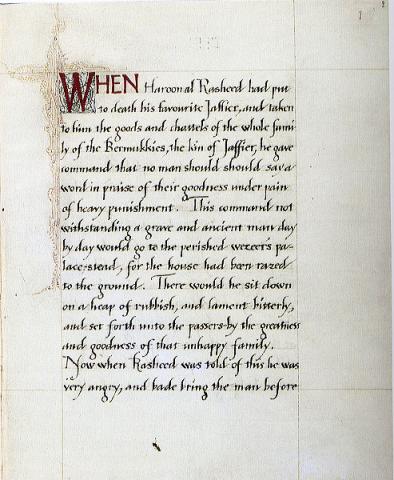 WHEN Haroon al Rasheed had put
to death his favourite Jaffier, and taken
to him the goods and chattels of the whole fami-
ly of the Bermukkies, the kin of Jaffier, he gave
command that no man should should say a
word in praise of their goodness under pain
of heavy punishment. This command not
withstanding a grave and ancient man day
by day would go to the perished wezeer's pa-
lace-stead, for the house had been razed
to the ground. There would he sit down
on a heap of rubbish, and lament bitterly,
and set forth unto the passers-by the greatness
and goodness of that unhappy family.
Now when Rasheed was told of this he was
very angry, and bade bring the man before